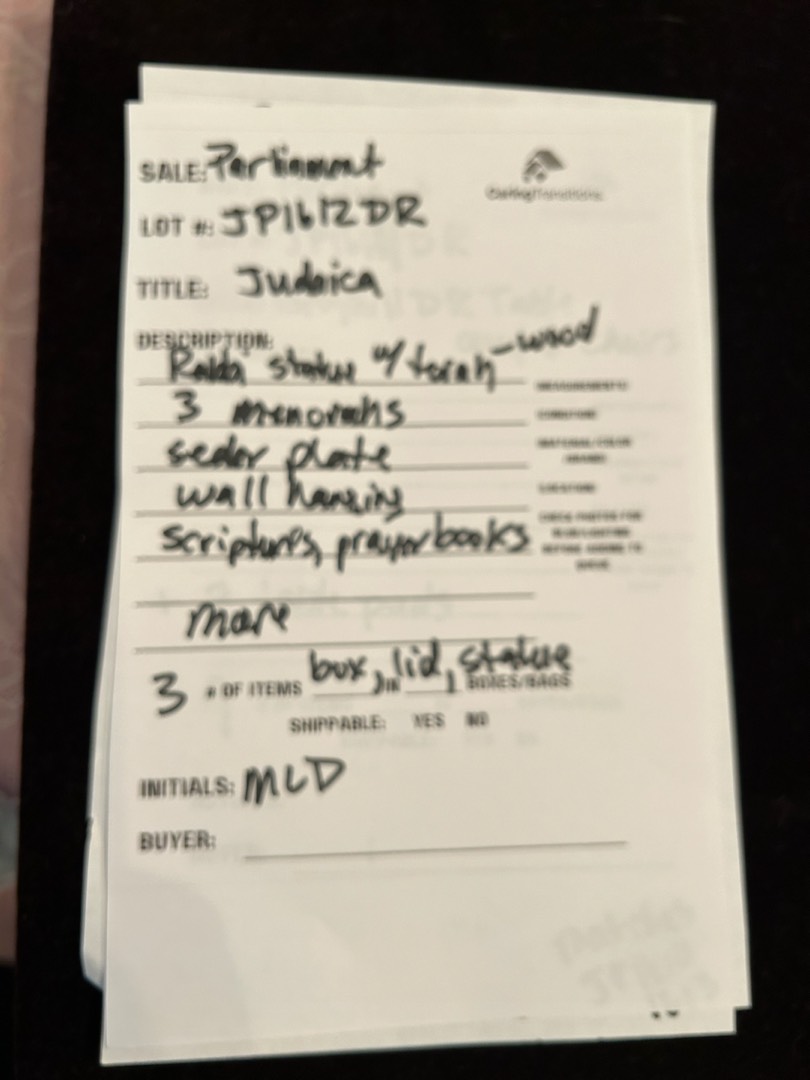 SALE: Parliament
CaringTransitions
LOT #: JP1612DR
TITLE: Judaica
DESCRIPTION:
Rabbi statue w/ torah - wood
MEASUREMENTS
3 menorahs
CONDITION
seder plate
MATERIAL/COLOR
wall hanging
scriptures, prayerbooks
more
3 # OF ITEMS box, lid, statue
IN BOXES/BAGS
SHIPPABLE: YES NO
INITIALS: MLD
BUYER: